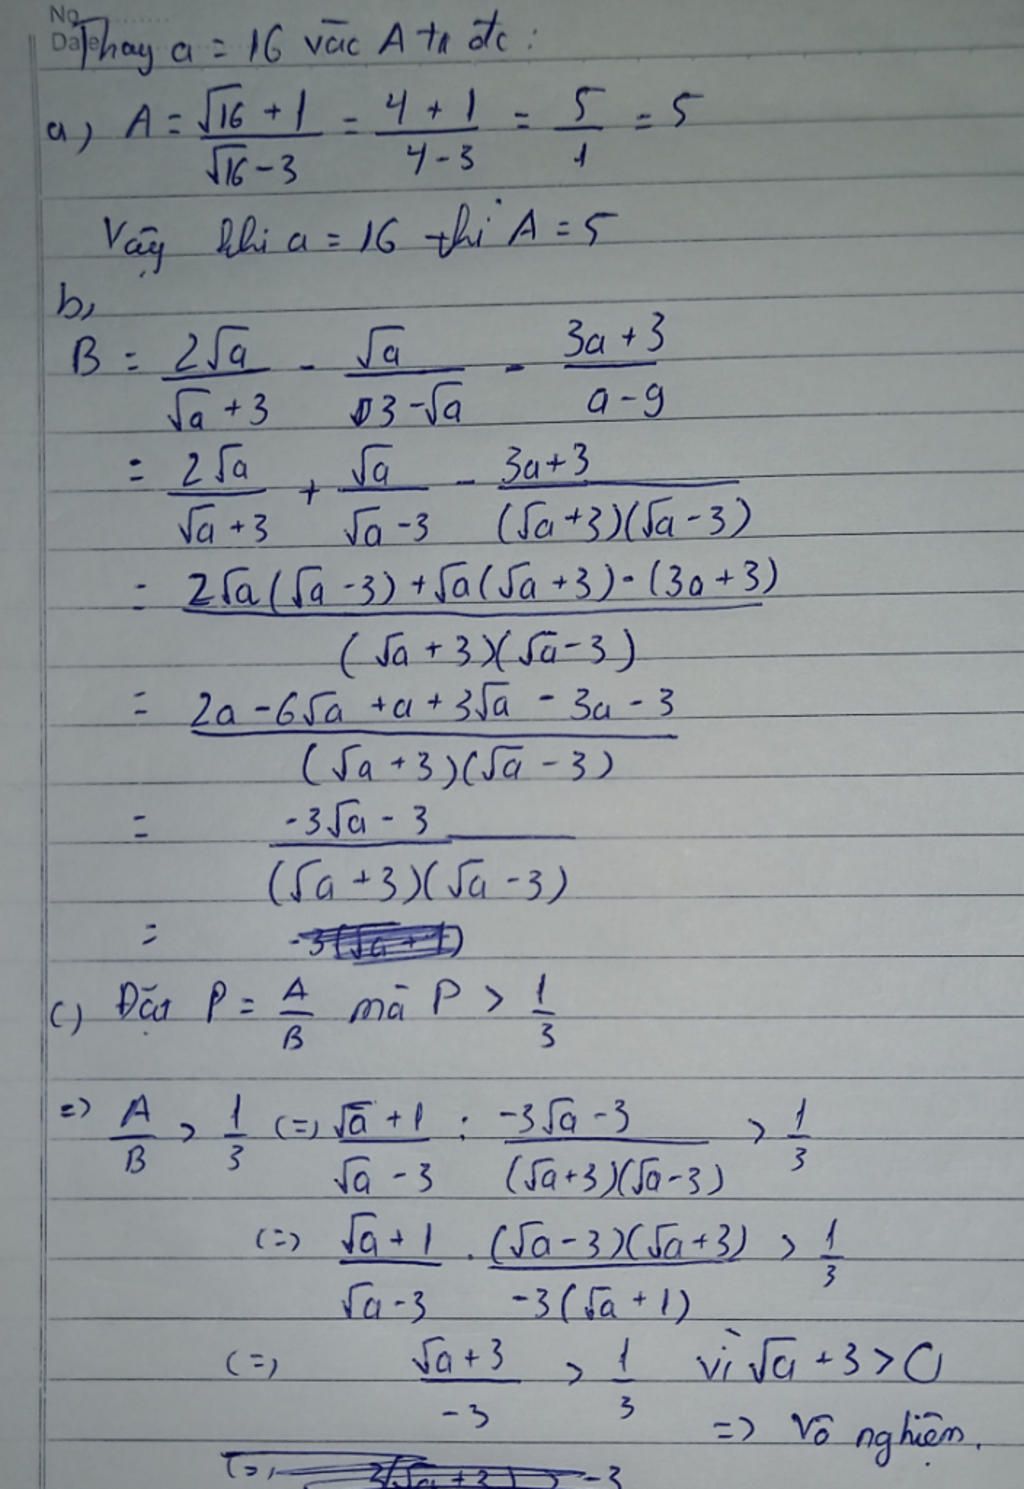 No
Date
Thay a = 16 vào A ta đc :
a) A = \frac{√16 + 1}{√16 - 3} = \frac{4 + 1}{4 - 3} = \frac{5}{1} = 5
Vậy khi a = 16 thì A = 5
b,
B = \frac{2√a}{√a + 3} - \frac{√a}{3 - √a} - \frac{3a + 3}{a - 9}
= \frac{2√a}{√a + 3} + \frac{√a}{√a - 3} - \frac{3a + 3}{(√a + 3)(√a - 3)}
= \frac{2√a(√a - 3) + √a(√a + 3) - (3a + 3)}{(√a + 3)(√a - 3)}
= \frac{2a - 6√a + a + 3√a - 3a - 3}{(√a + 3)(√a - 3)}
= \frac{-3√a - 3}{(√a + 3)(√a - 3)}
= -3(√a + 1)
c) Đặt P = \frac{A}{B} mà P > \frac{1}{3}
=> \frac{A}{B} > \frac{1}{3} (=) \frac{√a + 1}{√a - 3} : \frac{-3√a - 3}{(√a + 3)(√a - 3)} > \frac{1}{3}
(=) \frac{√a + 1}{√a - 3} . \frac{(√a - 3)(√a + 3)}{-3(√a + 1)} > \frac{1}{3}
(=) \frac{√a + 3}{-3} > \frac{1}{3} vì √a + 3 > 0
=> Vô nghiệm.